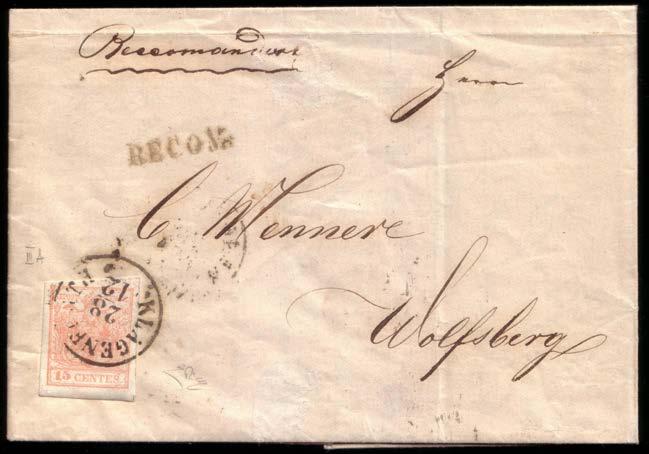 Recomandirt
Herrn
RECOM.
C. Wennere
III A
KLAGENF
28
12
Wolfsberg
15 CENTES